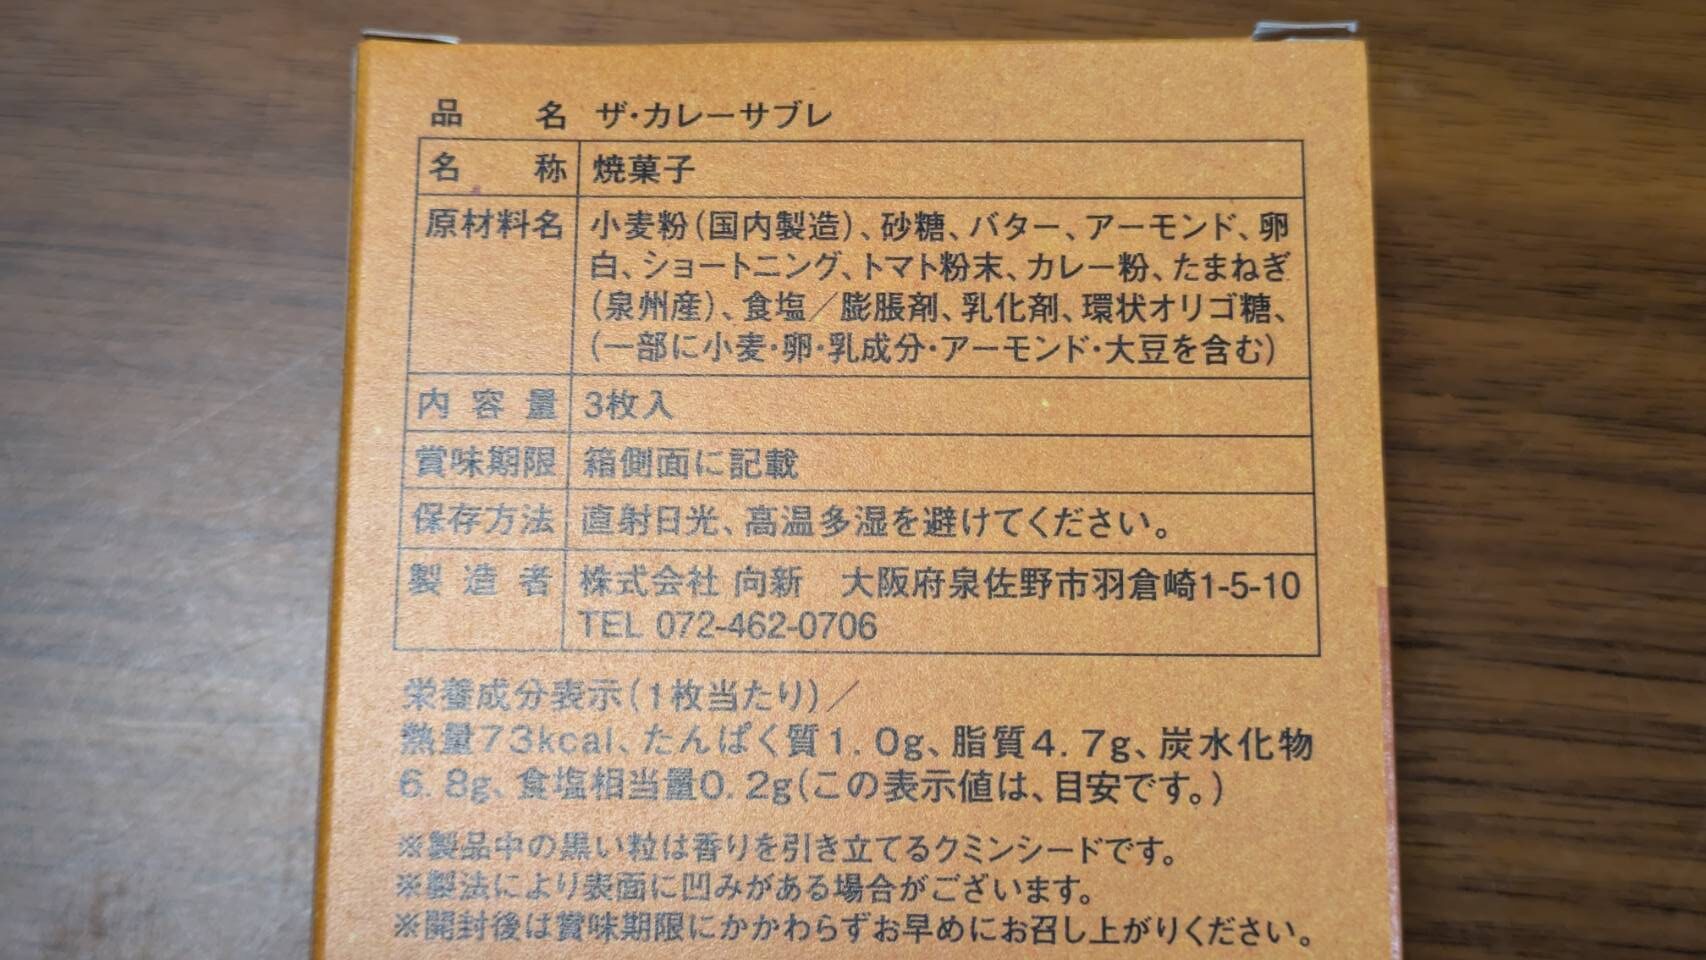 品　　名 ザ・カレーサブレ
名　　称 焼菓子
原材料名 小麦粉(国内製造)、砂糖、バター、アーモンド、卵
白、ショートニング、トマト粉末、カレー粉、たまねぎ
(泉州産)、食塩／膨脹剤、乳化剤、環状オリゴ糖、
(一部に小麦・卵・乳成分・アーモンド・大豆を含む)
内 容 量 3枚入
賞味期限 箱側面に記載
保存方法 直射日光、高温多湿を避けてください。
製 造 者 株式会社 向新　大阪府泉佐野市羽倉崎1-5-10
TEL 072-462-0706
栄養成分表示(1枚当たり)／
熱量73kcal、たんぱく質1.0g、脂質4.7g、炭水化物
6.8g、食塩相当量0.2g(この表示値は、目安です。)
※製品中の黒い粒は香りを引き立てるクミンシードです。
※製法により表面に凹みがある場合がございます。
※開封後は賞味期限にかかわらずお早めにお召し上がりください。